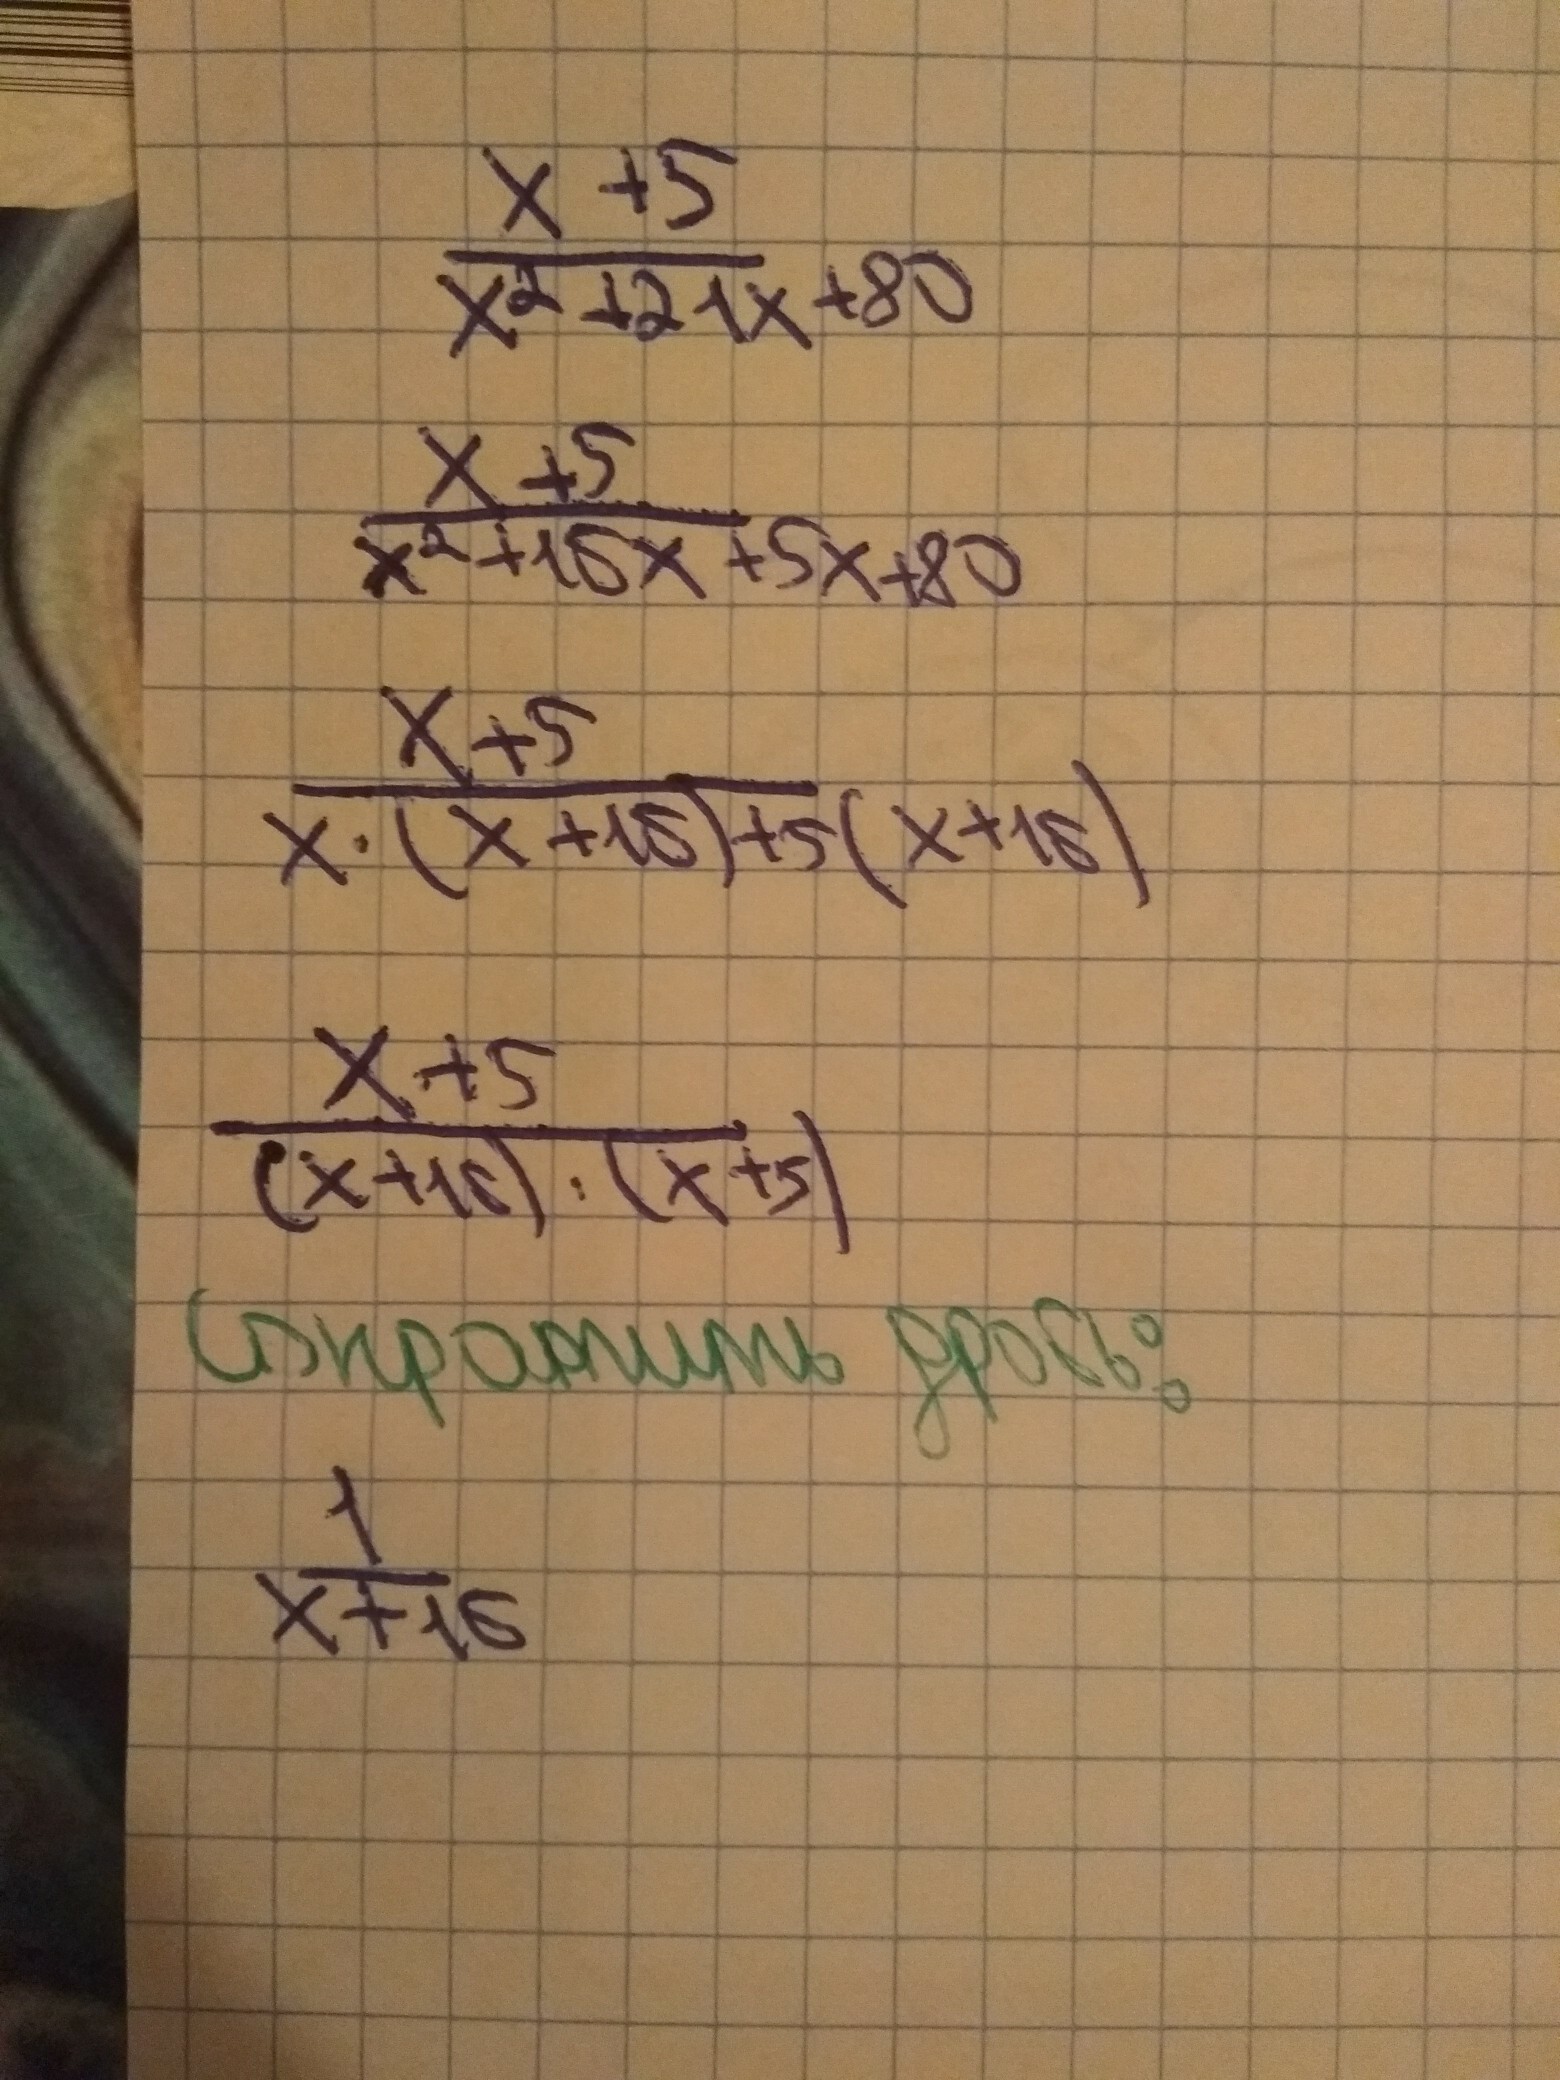 x + 5
x² + 21x + 80
x + 5
x² + 16x + 5x + 80
x + 5
x · (x + 16) + 5(x + 16)
x + 5
(x + 16) · (x + 5)
Сократить дробь:
1
x + 16